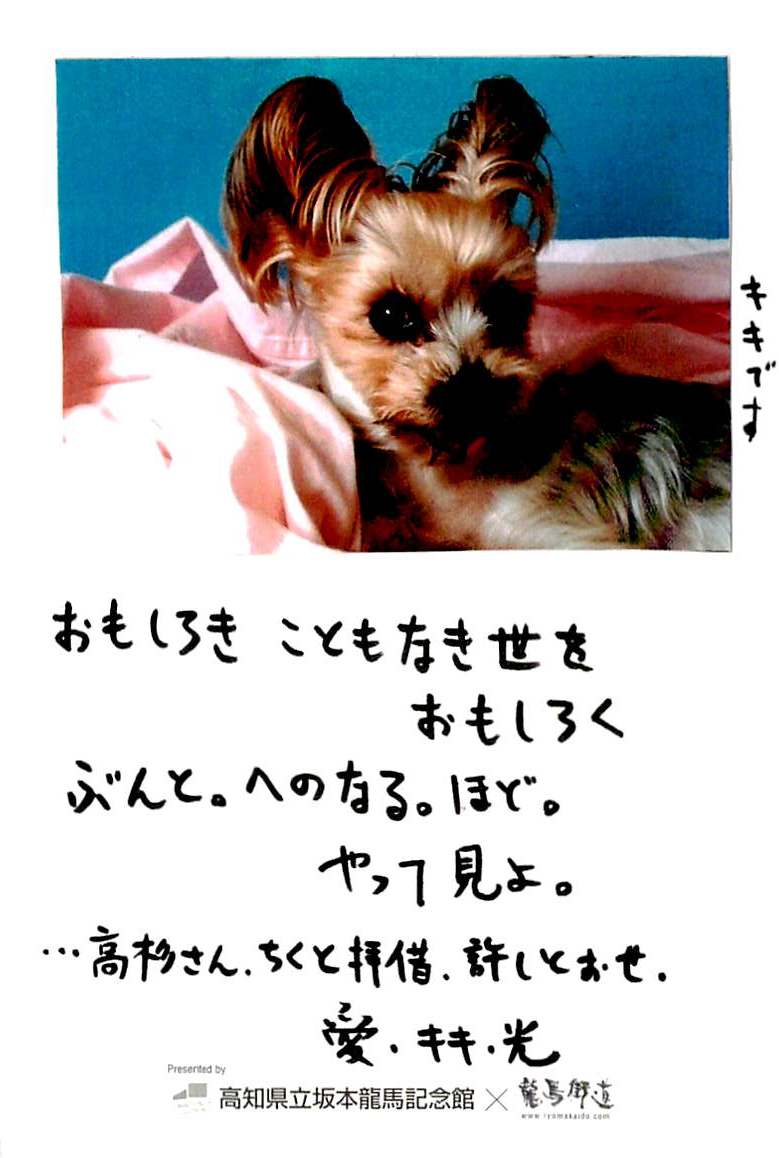 キキです
おもしろき こともなき世を
おもしろく
ぶんと。へのなる。ほど。
やって見よ。
…高杉さん、ちくと拝借、許しとおせ。
愛・キキ・光
Presented by
高知県立坂本龍馬記念館×龍馬街道
www.ryomakaido.com